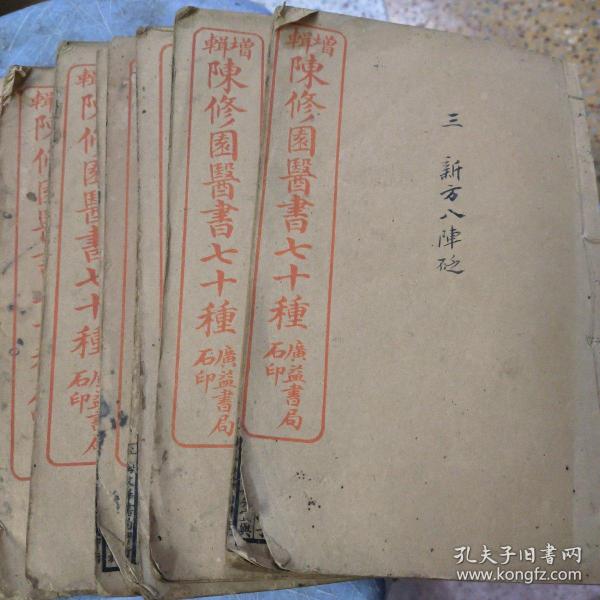 三 新方八陣砭
增輯
陳修園醫書七十種
廣益書局
石印
增輯
陳修園醫書七十種
廣益書局
石印
輯
陳修園醫書七十種
廣益書局
石印
輯
陳修園醫
孔夫子旧书网
www.kongfz.com